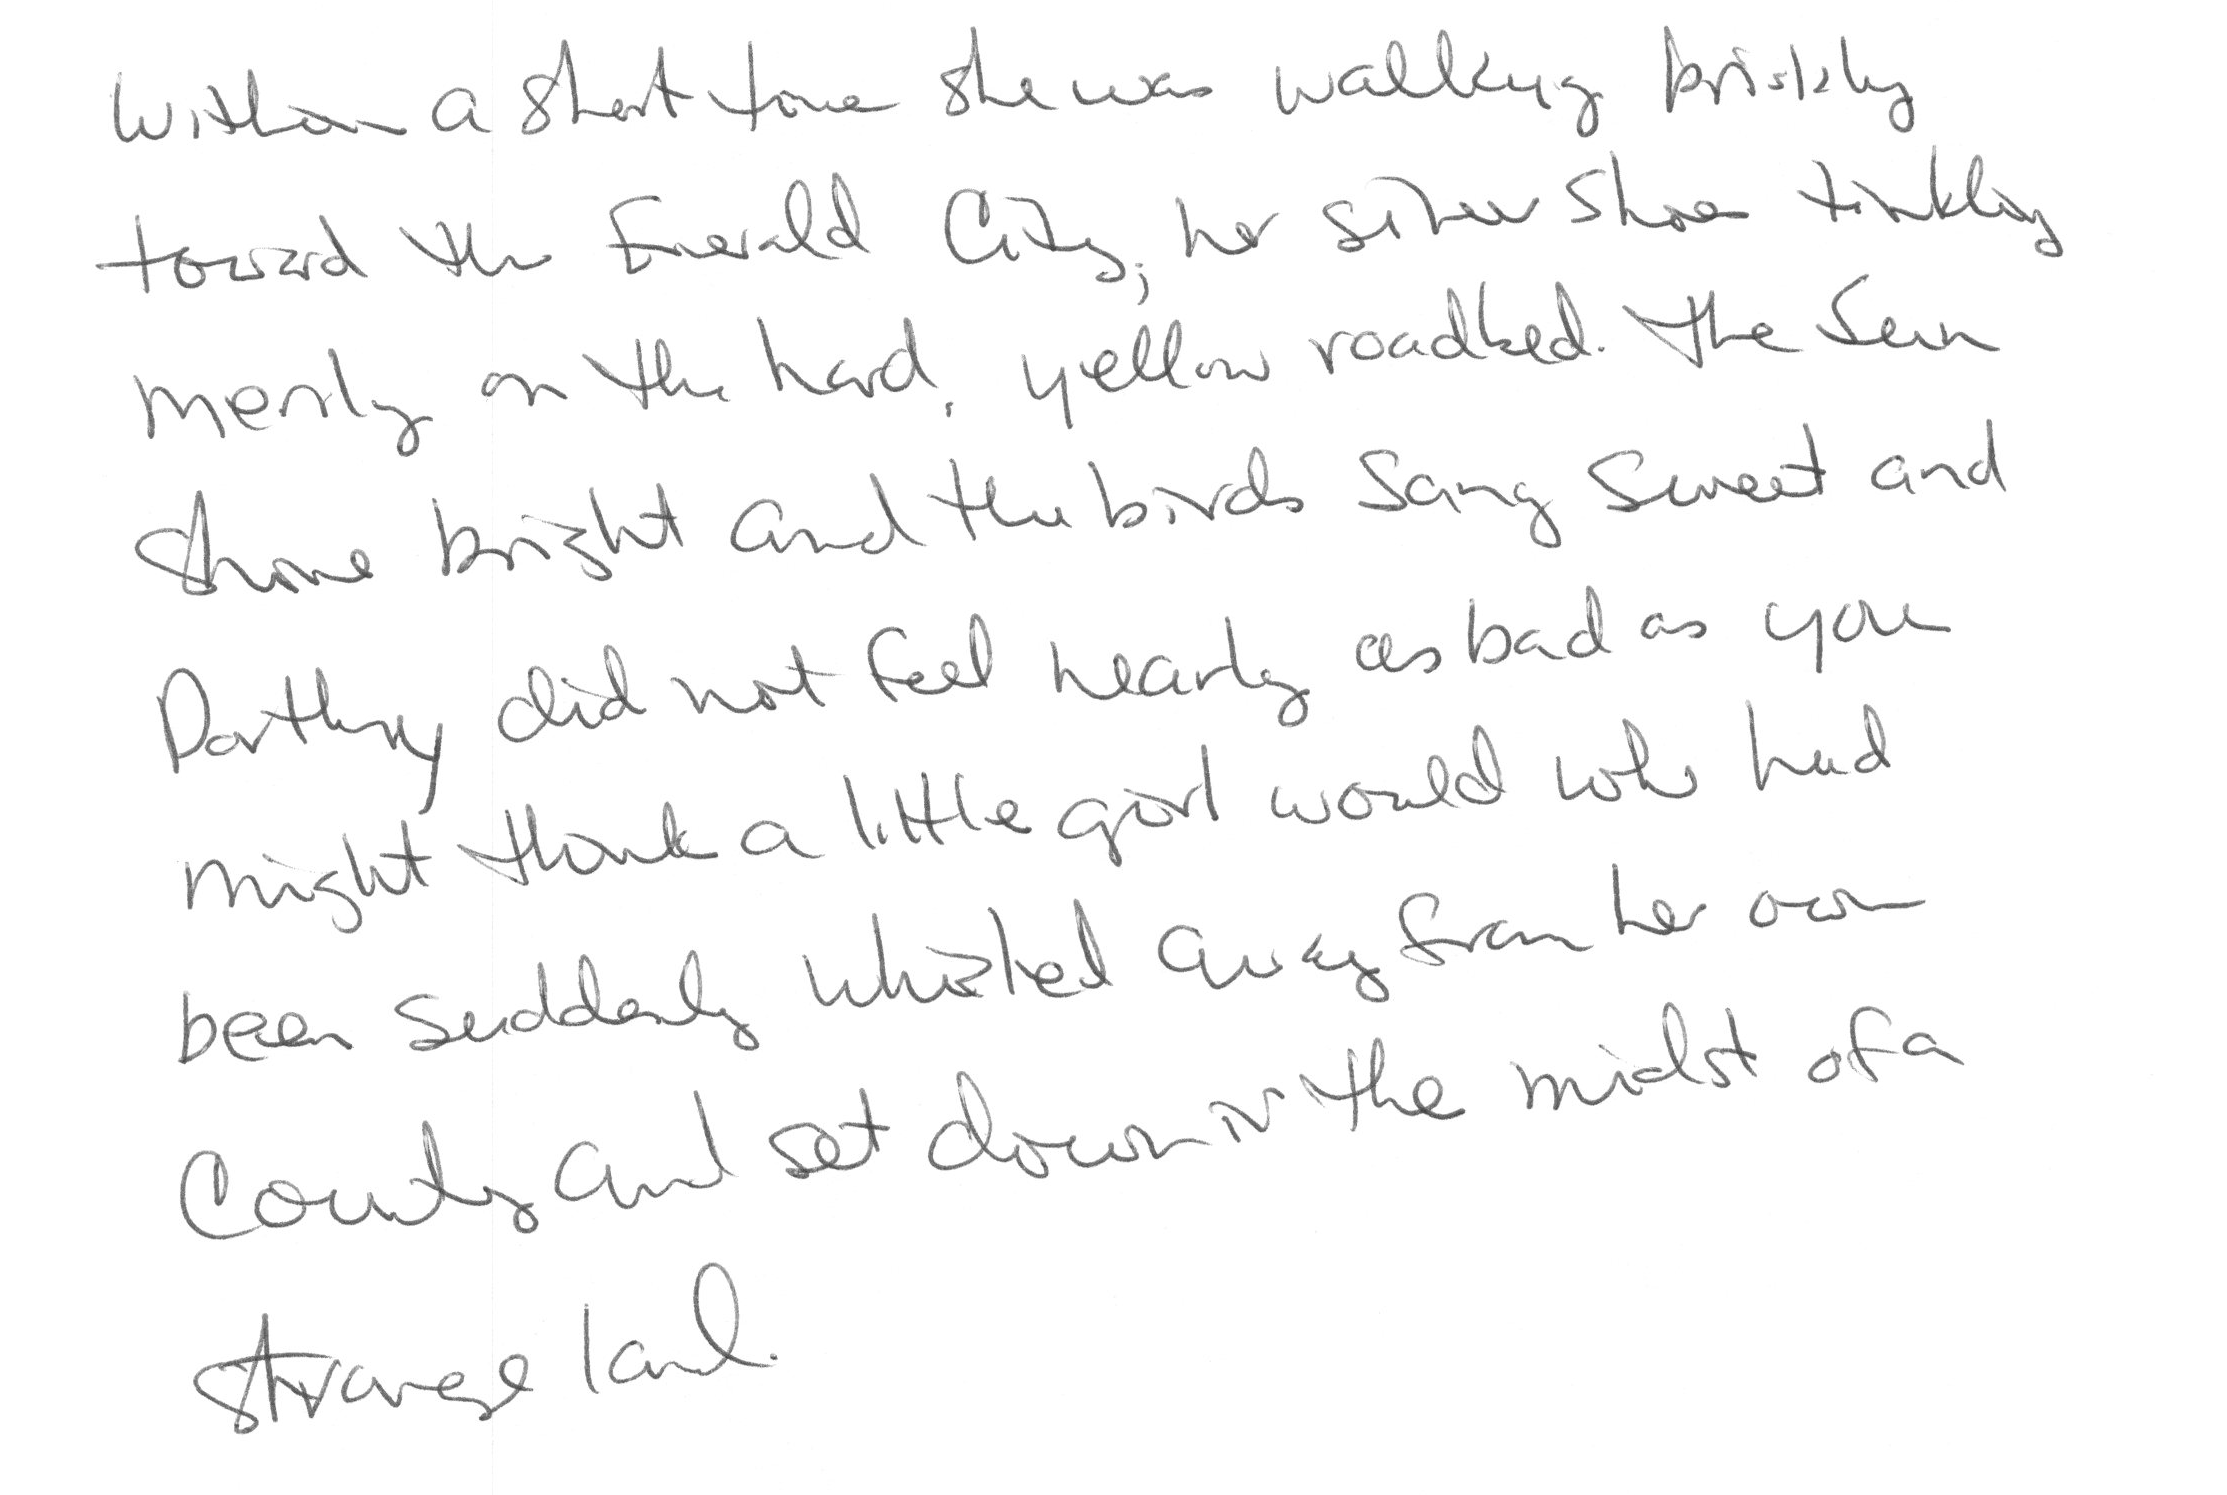 Within a short time she was walking briskly
toward the Emerald City, her silver shoes tinkling
merrily on the hard, yellow roadbed. The sun
shone bright and the birds sang sweet and
Dorthy did not feel nearly as bad as you
might think a little girl would who had
been suddenly whisked away from her own
country and set down in the midst of a
strange land.